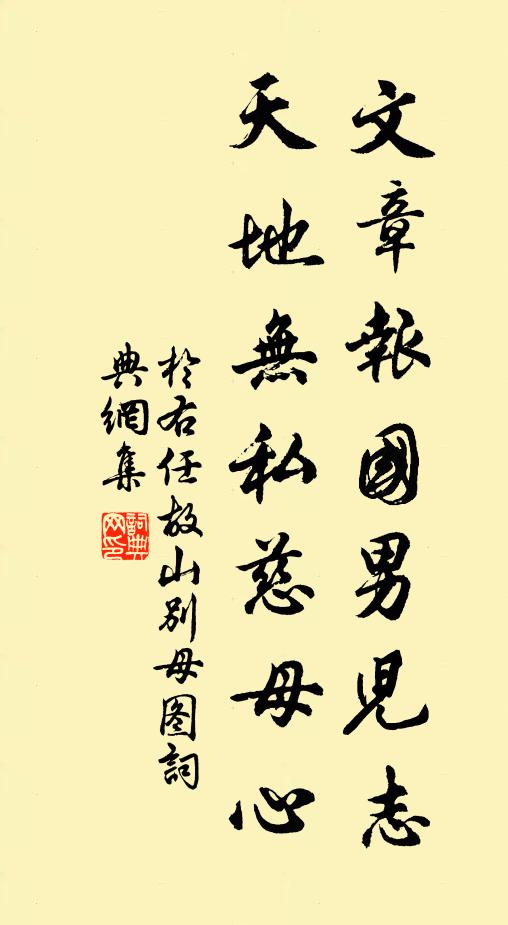 文章報國男兒志
天地無私慈母心
於右任故山別母图詞
典網集
詞典
网印